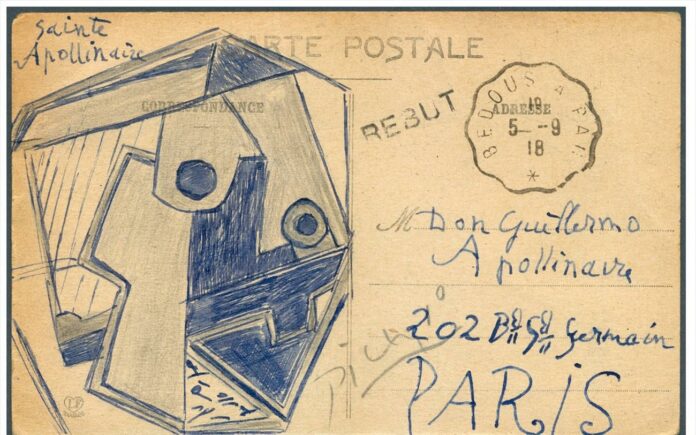 Sainte
Apollinaire
CARTE POSTALE
CORRESPONDANCE
REBUT
BEDOUS A PAU
ADRESSE
19
5 - 9
18
*
M Don Guillermo
Apollinaire
202 Bd St Germain
PARIS